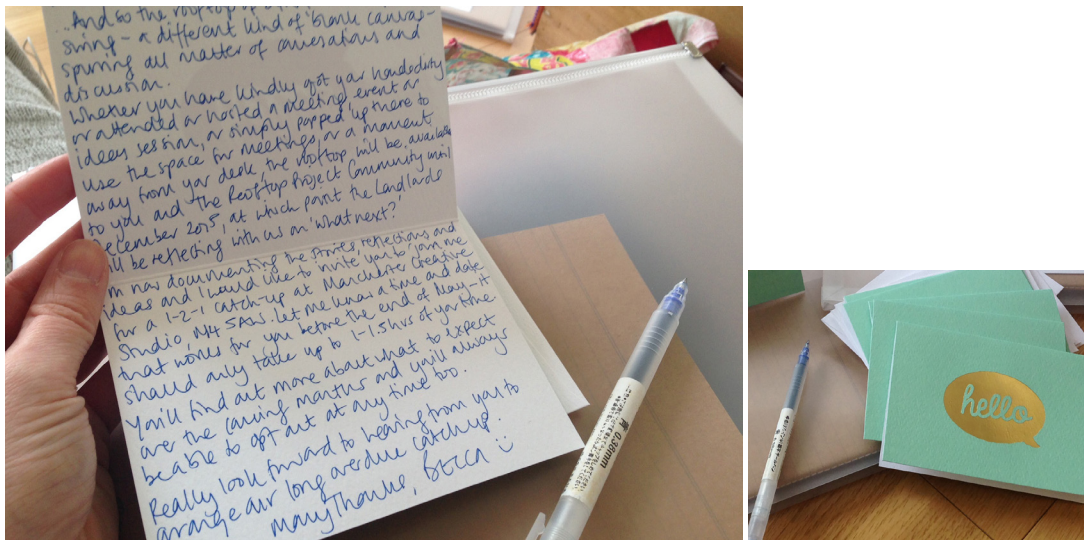 ...And so the rooftop
swing – a different kind of 'blank canvas' –
spurring all matter of conversations and
discussion.
Whether you have kindly got your hands dirty
or attended or hosted a meeting event or
ideas session, or simply popped up there to
use the space for meetings, or a moment
away from your desk, the rooftop will be available
to you and the Rooftop Project Community until
December 2015, at which point the Landlords
will be reflecting with us on 'what next?'
I'm now documenting the stories, reflections and
ideas and I would like to invite you to join me
for a 1-2-1 catch-up at Manchester Creative
Studio, M4 5AW. Let me know a time and date
that works for you before the end of May – it
should only take up to 1-1.5hrs of your time
You'll find out more about what to expect
over the coming months and you'll always
be able to opt out at any time too.
Really look forward to hearing from you to
arrange our long overdue catch up!
Many Thanks, BECCA
0.38mm
hello